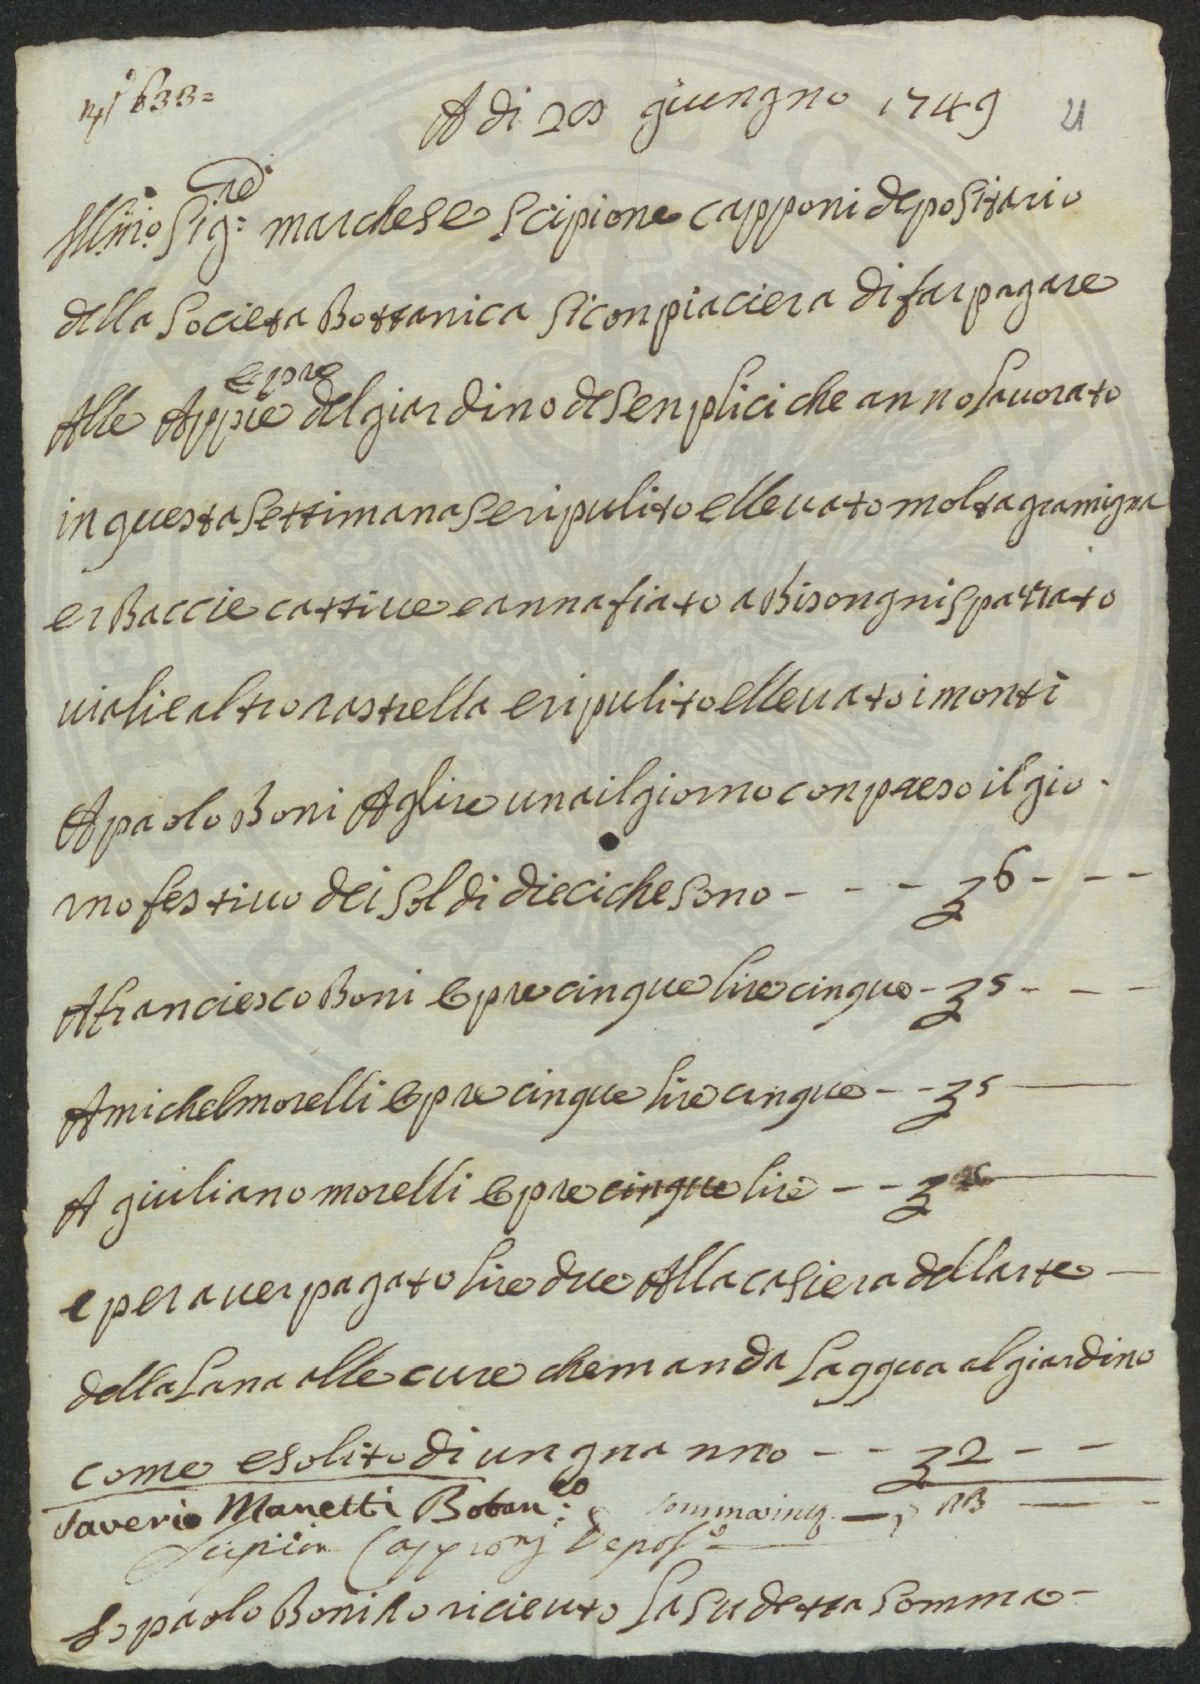 633=
A di 28 giungno 1749
21
Illmo Sig:re marchese Scipione capponi depositario
della Societa Bottanica Siconpiaciera di far pagare
Alle Appie Epre del giardino deSenplici che anno Lauorato
in questa Settimana Se ripulito ellevato molta gramigna
erBaccie cattiue e annafiato a Bisongni spazzato
uiali e altro rastrella e ripulito elleuato i monti
A paolo Boni A glire una il giorno conpreso il gio-
rno festiuo dei Soldi dieci che Sono - - - 6 - - -
A franciesco Boni Epre cinque lire cinque - 5 - - -
A michel morelli Epre cinque lire cinque - - 5
A giuliano morelli Epre cinque lire - -
e per auer pagato lire due Alla casiera dellarte
della Lana alle cure che manda Laqqua al giardino
come esolito di ungna nno - - 2 - -
Saverio Manetti Botan:co Somma in tt
Scipion Capponj Depos:o
Io paolo Boni ho riceuto La Su detta Somma -